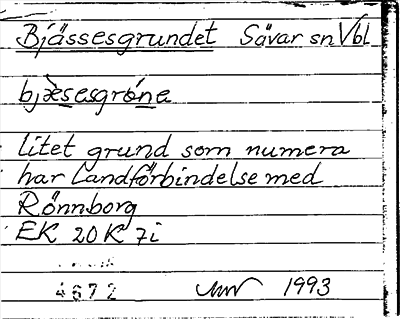 Bjässesgrundet Sävar sn Vbl
bjæsesgróne
litet grund som numera
har landförbindelse med
Rönnborg
EK 20K 7i
4672 1993